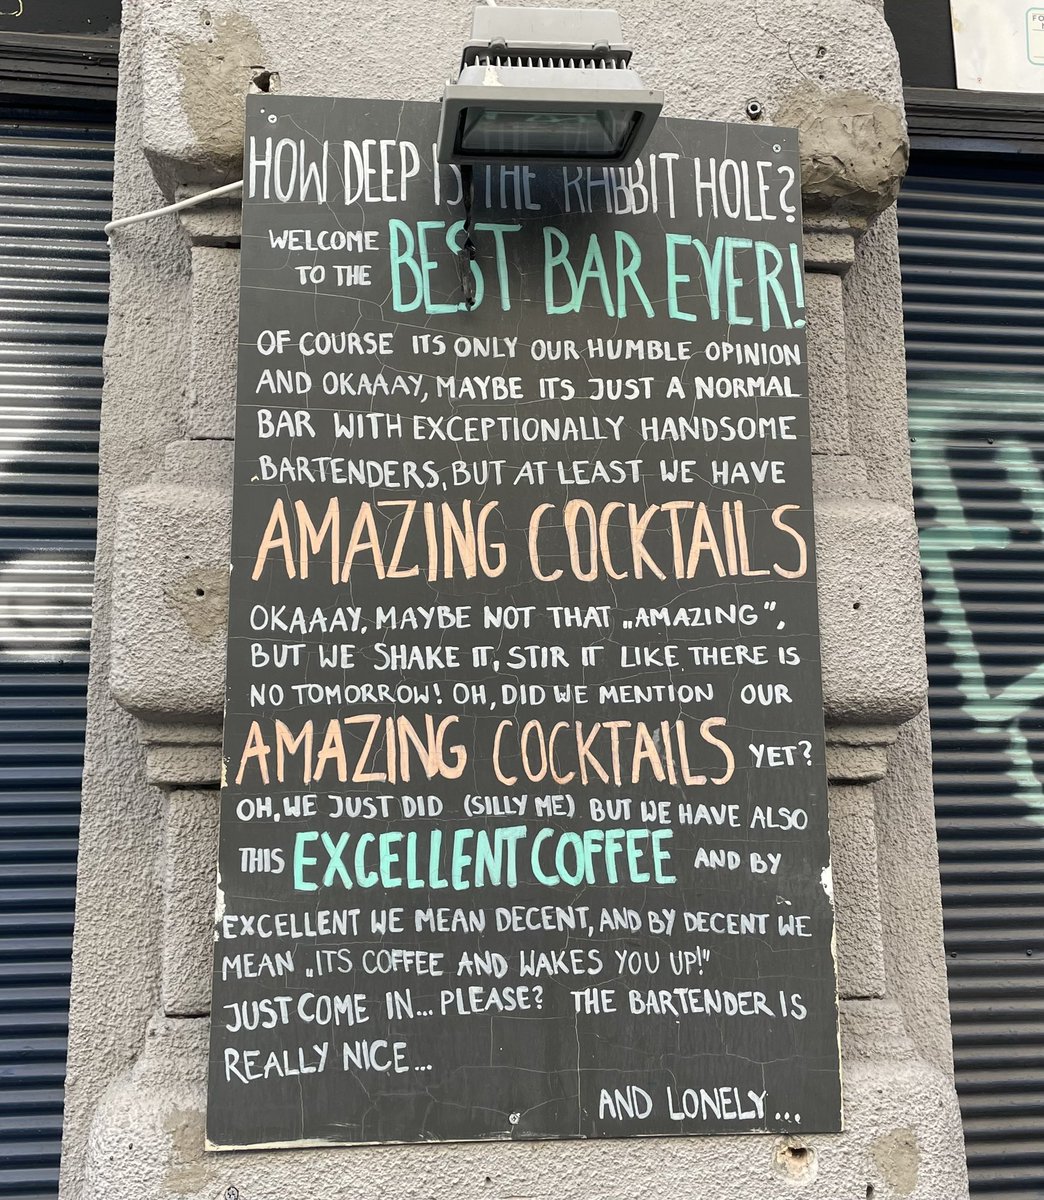 HOW DEEP IS THE RABBIT HOLE?
WELCOME TO THE BEST BAR EVER!
OF COURSE ITS ONLY OUR HUMBLE OPINION
AND OKAAAY, MAYBE ITS JUST A NORMAL
BAR WITH EXCEPTIONALLY HANDSOME
BARTENDERS, BUT AT LEAST WE HAVE
AMAZING COCKTAILS
OKAAAY, MAYBE NOT THAT „AMAZING”,
BUT WE SHAKE IT, STIR IT LIKE THERE IS
NO TOMORROW! OH, DID WE MENTION OUR
AMAZING COCKTAILS YET?
OH, WE JUST DID (SILLY ME) BUT WE HAVE ALSO
THIS EXCELLENT COFFEE AND BY
EXCELLENT WE MEAN DECENT, AND BY DECENT WE
MEAN „ITS COFFEE AND WAKES YOU UP!"
JUST COME IN... PLEASE? THE BARTENDER IS
REALLY NICE...
AND LONELY...